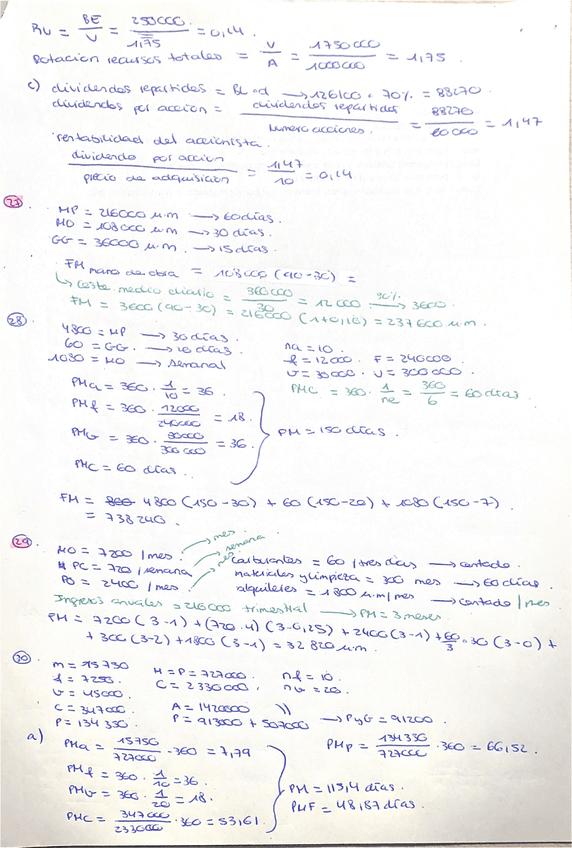 RV = BE/V = 250000/1,75 = 0,14.
Rotacion recursos totales = V/A = 1750000/1000000 = 1,75.
c) dividendos repartidos = Bl · d → 126100 · 70% = 88270
dividendos por accion = dividendos repartidos/numero acciones. = 88270/60000 = 1,47
rentabilidad del accionista.
dividendo por accion/precio de adquisicion = 1,47/10 = 0,14
27
MP = 216000 u.m → 60 días.
MO = 108000 u.m → 30 días.
GG = 36000 u.m. → 15 días.
FM mano de obra = 108000 (90-30) =
↳ Coste medio diario = 360000/30 = 12000 30%→ 3600.
FM = 3600 (90-30) = 216000 (1+0,10) = 237600 u.m.
28
4800 = MP → 30 días.
60 = GG. → 20 días.
1080 = MO → semanal
na = 10.
f = 12000. F = 240000.
v = 30000. V = 300000.
PMa = 360 · 1/10 = 36.
PMC = 360 · 1/nc = 360/6 = 60 días
PMf = 360 · 12000/240000 = 18.
PMv = 360 · 30000/300000 = 36.
PM = 150 días.
PMC = 60 días.
FM = 4800 (150-30) + 60 (150-20) + 1080 (150-7).
= 738240.
29
MO = 7200 / mes. → mes.
PC = 720 / semana → semana
PO = 2400 / mes → mes
carburantes = 60 / tres días → contado.
materiales y limpieza = 300 mes → 60 días.
alquileres = 1800 u.m / mes → contado / mes.
Ingresos anuales = 216000 trimestral → PM = 3 meses.
FM = 7200 (3-1) + (720·4) (3-0,25) + 2400 (3-1) + 60/3 · 30 (3-0) +
+ 300 (3-2) + 1800 (3-1) = 32820 u.m.
30
m = 15750
f = 7250.
v = 45000.
C = 347000
P = 134330.
M = P = 727000.
C = 2330000.
nf = 10.
nv = 20.
A = 1420800
P = 913000 + 507000 → PyG = 91200.
a) PMa = 15750/727000 · 360 = 7,79
PMp = 134330/727000 · 360 = 66,52.
PMf = 360 · 1/10 = 36.
PMv = 360 · 1/20 = 18.
PMC = 347000/2330000 · 360 = 53,61.
PM = 115,4 días.
PMF = 48,87 días.